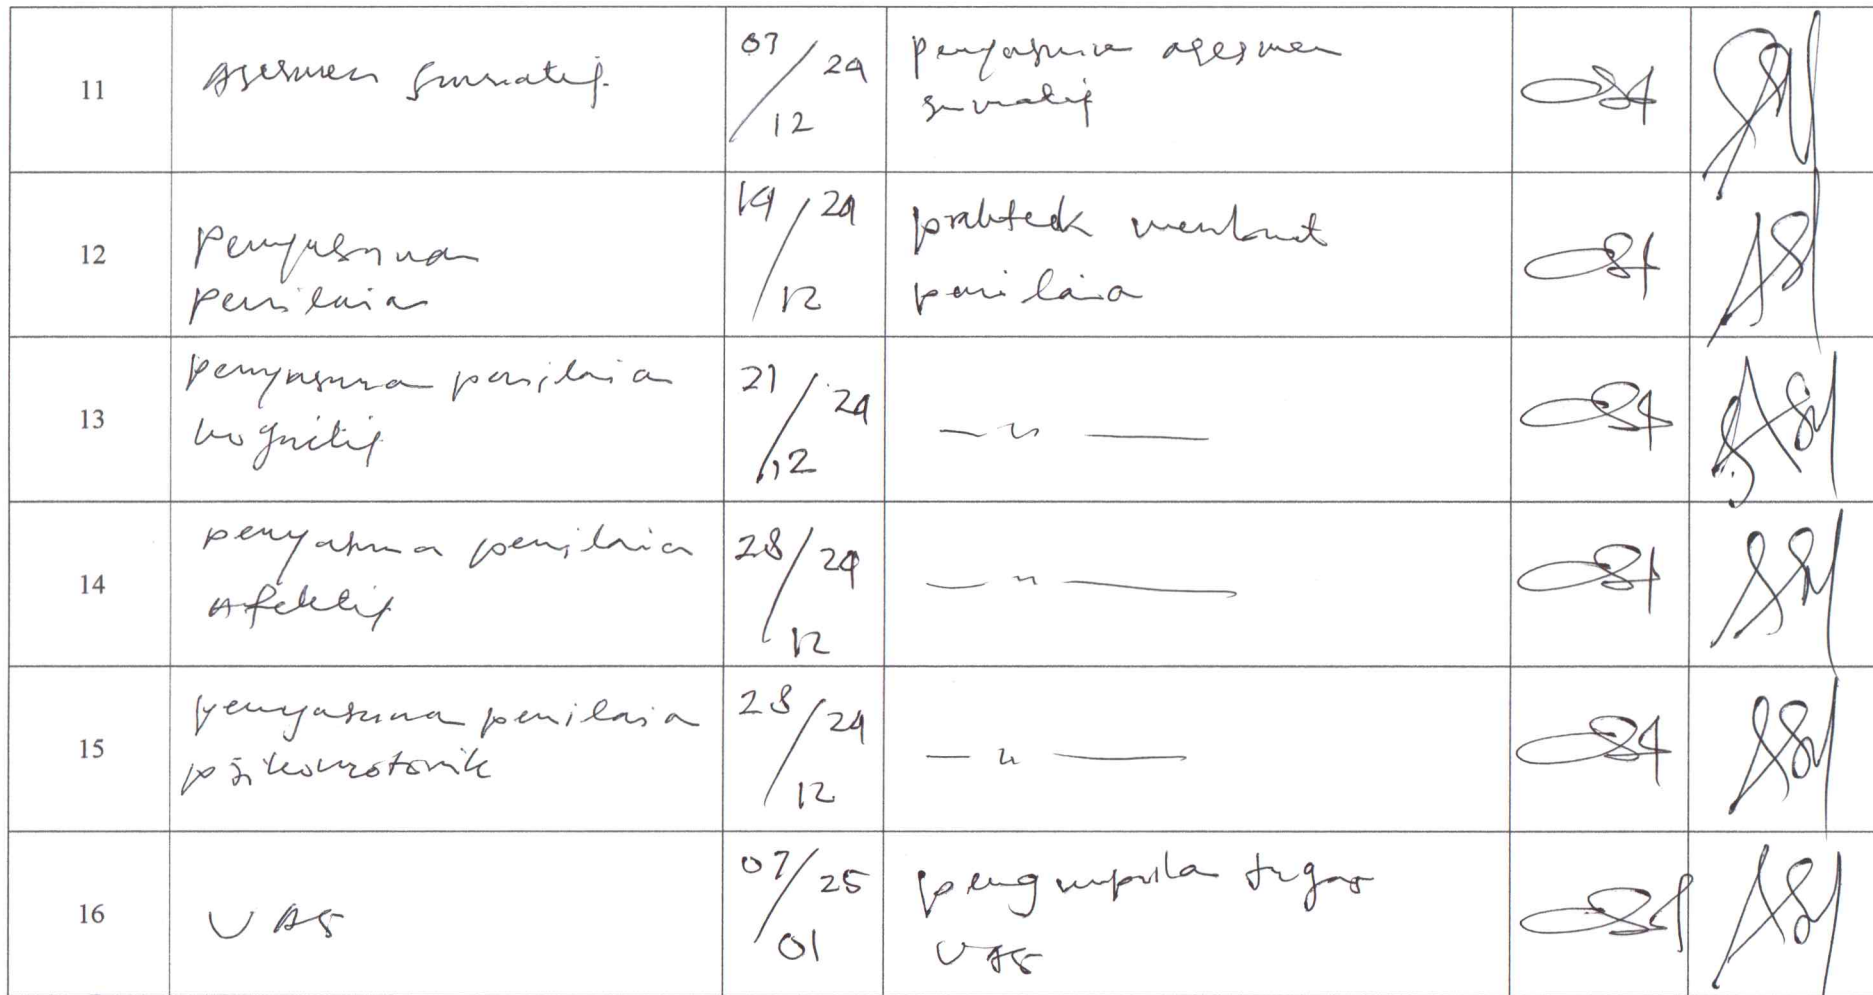 11
Asesmen Sumatif.
07/24
12
penyusunan asesmen
sumatif
12
Penyusunan
penilaian
14/24
12
prakteek membuat
penilaian
13
penyusunan penilaian
kognitif
21/24
12
— " —
14
penyusunan penilaian
Afektif
28/24
12
— " —
15
penyusunan penilaian
psikomotorik
28/24
12
— " —
16
UAS
07/25
01
pengumpulan tugas
UAS